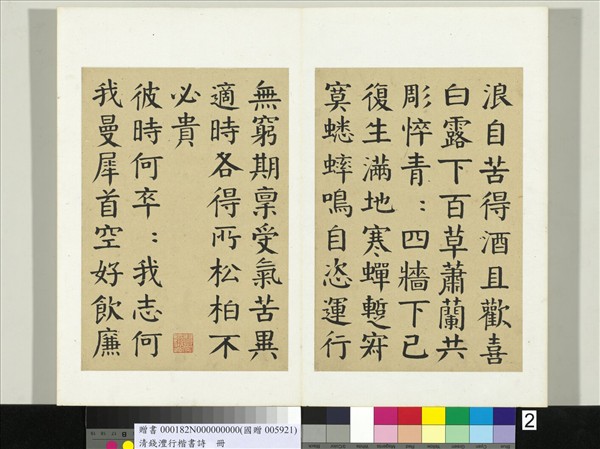 浪自苦得酒且歡喜
白露下百草蕭蘭共
彫悴青〻四牆下已
復生滿地寒蟬蹔寂
寞蟋蟀鳴自恣運行
無窮期稟受氣苦異
適時各得所松柏不
必貴
彼時何卒〻我志何
我曼犀首空好飲廉
贈書 000182N000000000(國贈 005921)
清錢灃行楷書詩　冊
2